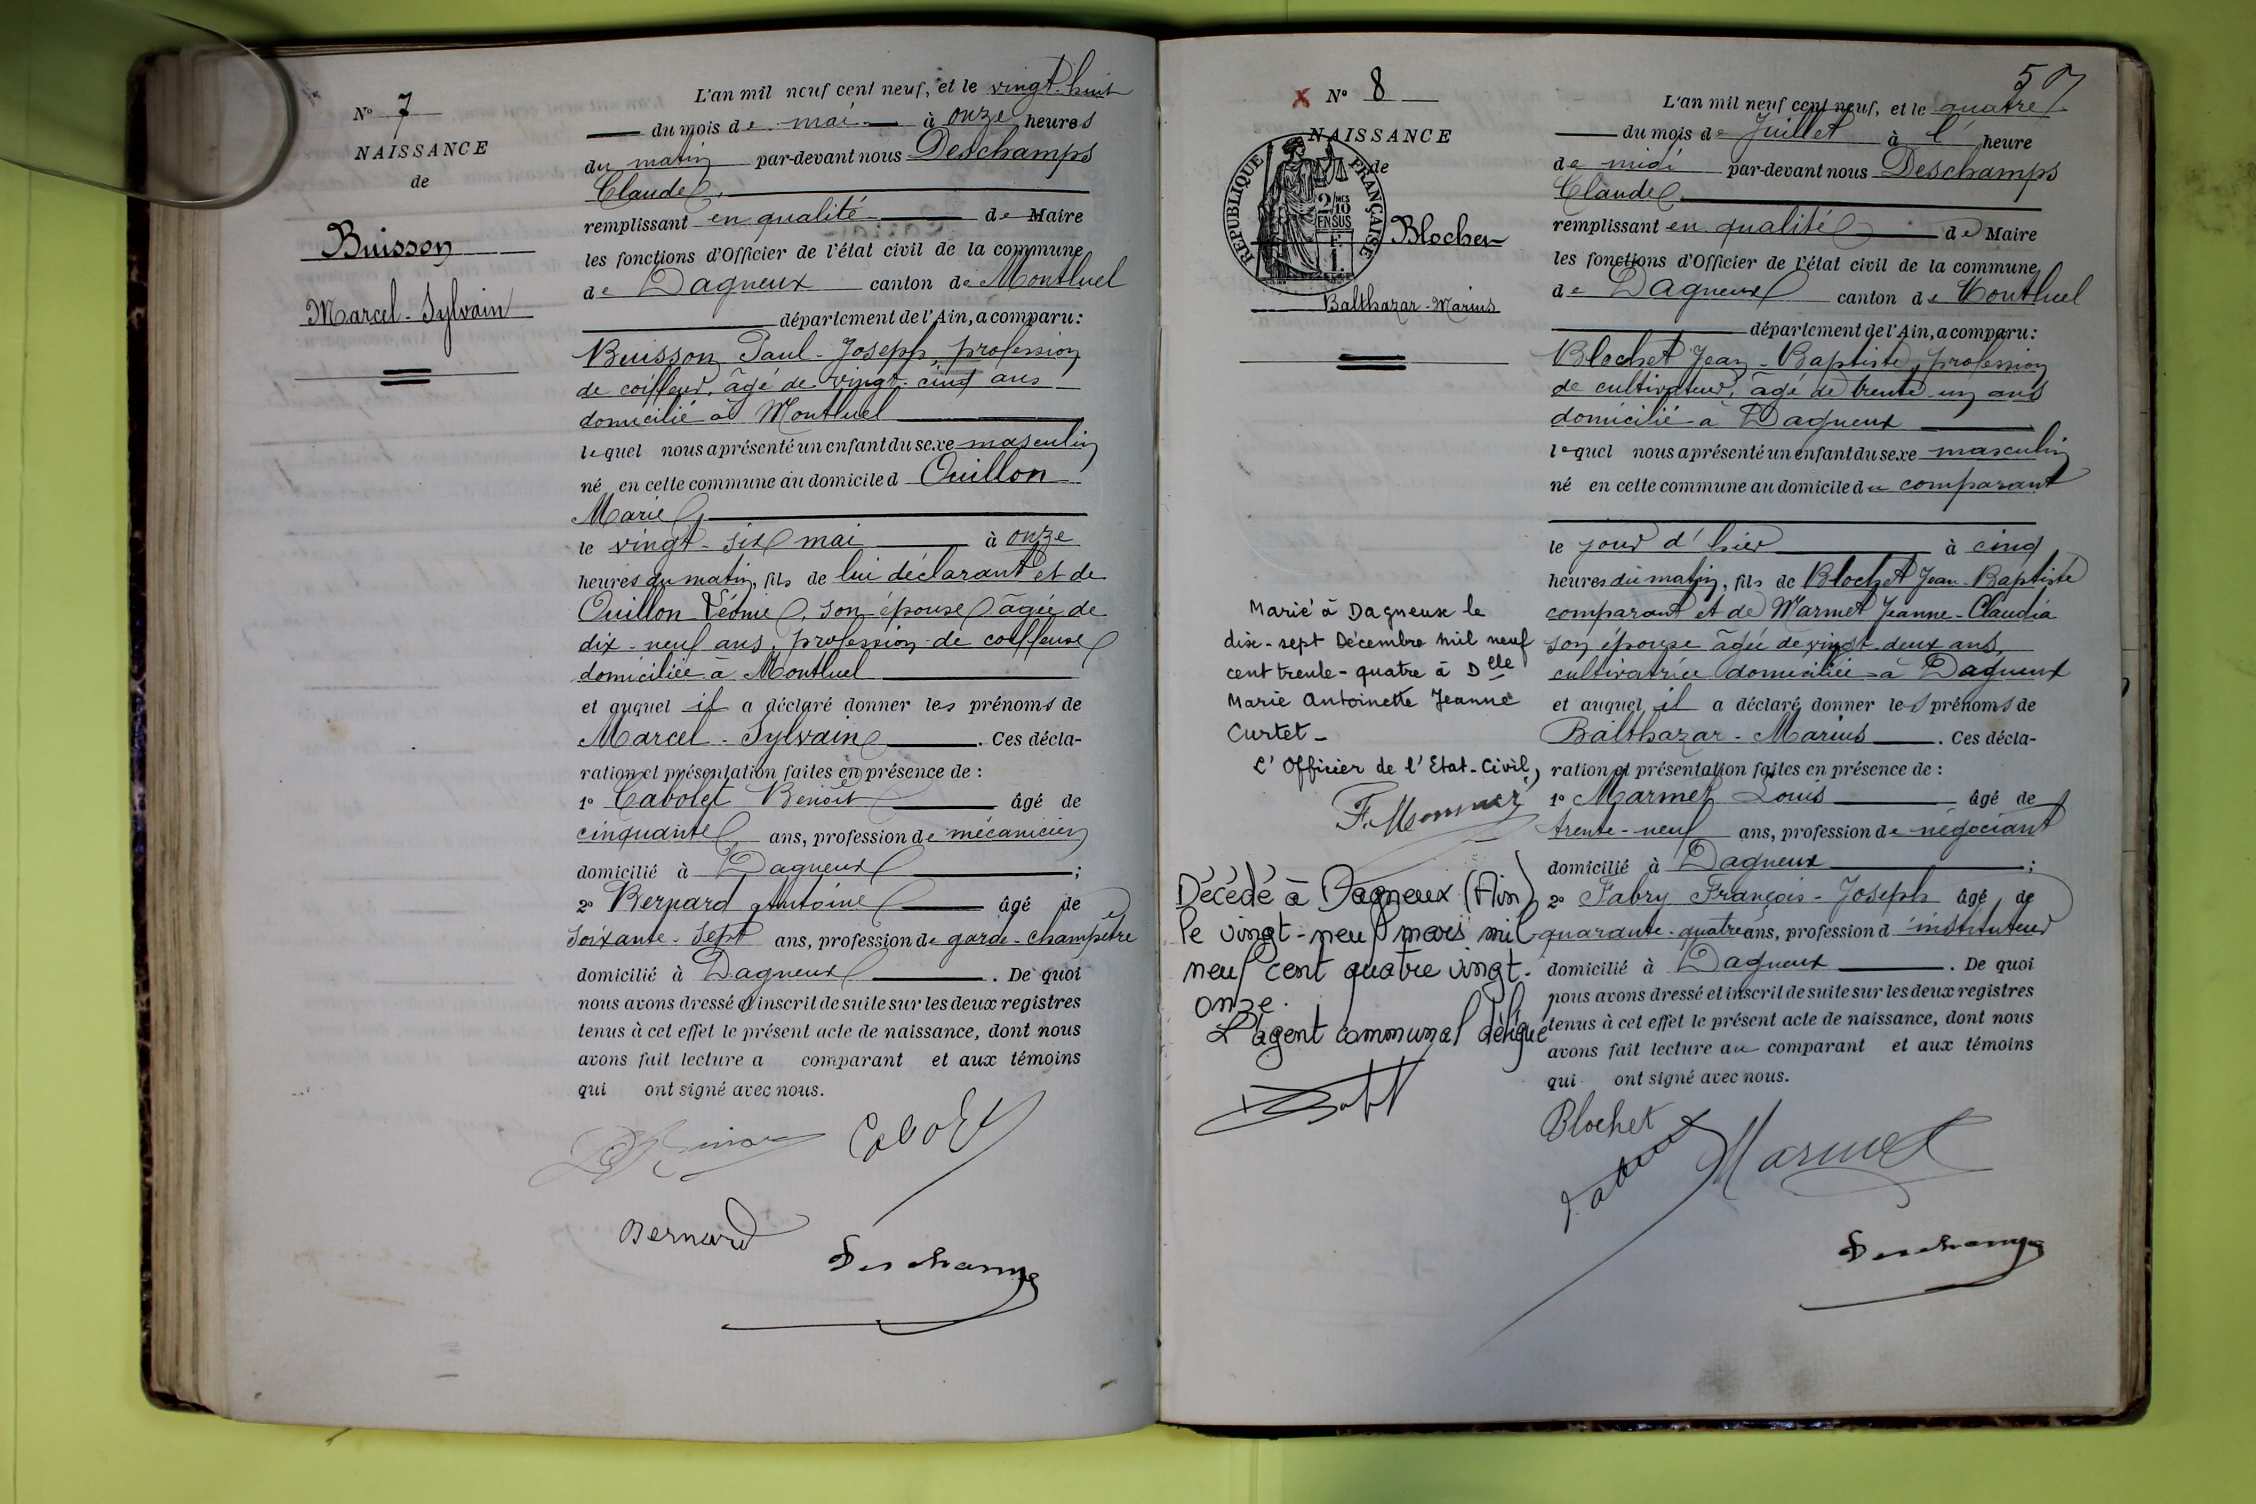 N° 7
NAISSANCE
de
Buisson
Marcel-Sylvain
L'an mil neuf cent neuf, et le vingt-huit
du mois de mai à onze heures
du matin par-devant nous Deschamps
Claude
remplissant en qualité de Maire
les fonctions d'Officier de l'état civil de la commune
de Dagneux canton de Montluel
département de l'Ain, a comparu:
Buisson Paul-Joseph, profession
de coiffeur, âgé de vingt-cinq ans
domicilié à Montluel
lequel nous a présenté un enfant du sexe masculin
né en cette commune au domicile d Ouillon
Marie
le vingt-six mai à onze
heures du matin, fils de lui déclarant et de
Ouillon Léonie, son épouse âgée de
dix-neuf ans, profession de coiffeuse
domiciliée à Montluel
et auquel il a déclaré donner les prénoms de
Marcel-Sylvain. Ces décla-
ration et présentation faites en présence de:
1° Cavolet Benoît âgé de
cinquante ans, profession de mécanicien
domicilié à Dagneux;
2° Bernard Antoine âgé de
soixante-sept ans, profession de garde-champêtre
domicilié à Dagneux. De quoi
nous avons dressé et inscrit de suite sur les deux registres
tenus à cet effet le présent acte de naissance, dont nous
avons fait lecture a comparant et aux témoins
qui ont signé avec nous.
Bernard
Deschamps
50
X N° 8
NAISSANCE
de
REPUBLIQUE FRANÇAISE
2/10 MES
EN SUS
Blochet
Balthazar-Marius
L'an mil neuf cent neuf, et le quatre
du mois de Juillet à l' heure
de midi par-devant nous Deschamps
Claude
remplissant en qualité de Maire
les fonctions d'Officier de l'état civil de la commune
de Dagneux canton de Montluel
département de l'Ain, a comparu:
Blochet Jean-Baptiste, profession
de cultivateur, âgé de trente-un ans
domicilié à Dagneux
lequel nous a présenté un enfant du sexe masculin
né en cette commune au domicile du comparant
le jour d'hier à cinq
heures du matin, fils de Blochet Jean-Baptiste
comparant et de Marmet Jeanne-Claudia
son épouse âgée de vingt-deux ans,
cultivatrice domiciliée à Dagneux
et auquel il a déclaré donner les prénoms de
Balthazar-Marius. Ces décla-
ration et présentation faites en présence de:
1° Marmet Louis âgé de
trente-neuf ans, profession de négociant
domicilié à Dagneux;
2° Fabry François-Joseph âgé de
quarante-quatre ans, profession d'instituteur
domicilié à Dagneux. De quoi
nous avons dressé et inscrit de suite sur les deux registres
tenus à cet effet le présent acte de naissance, dont nous
avons fait lecture au comparant et aux témoins
qui ont signé avec nous.
Marié à Dagneux le
dix-sept Décembre mil neuf
cent trente-quatre à Dlle
Marie Antoinette Jeanne
Curtet-
L'Officier de l'Etat-Civil,
Décédé à Dagneux (Ain)
le vingt-neuf mars mil
neuf cent quatre vingt-
onze.
L'agent communal délégué
Blochet
Marmet
Deschamps